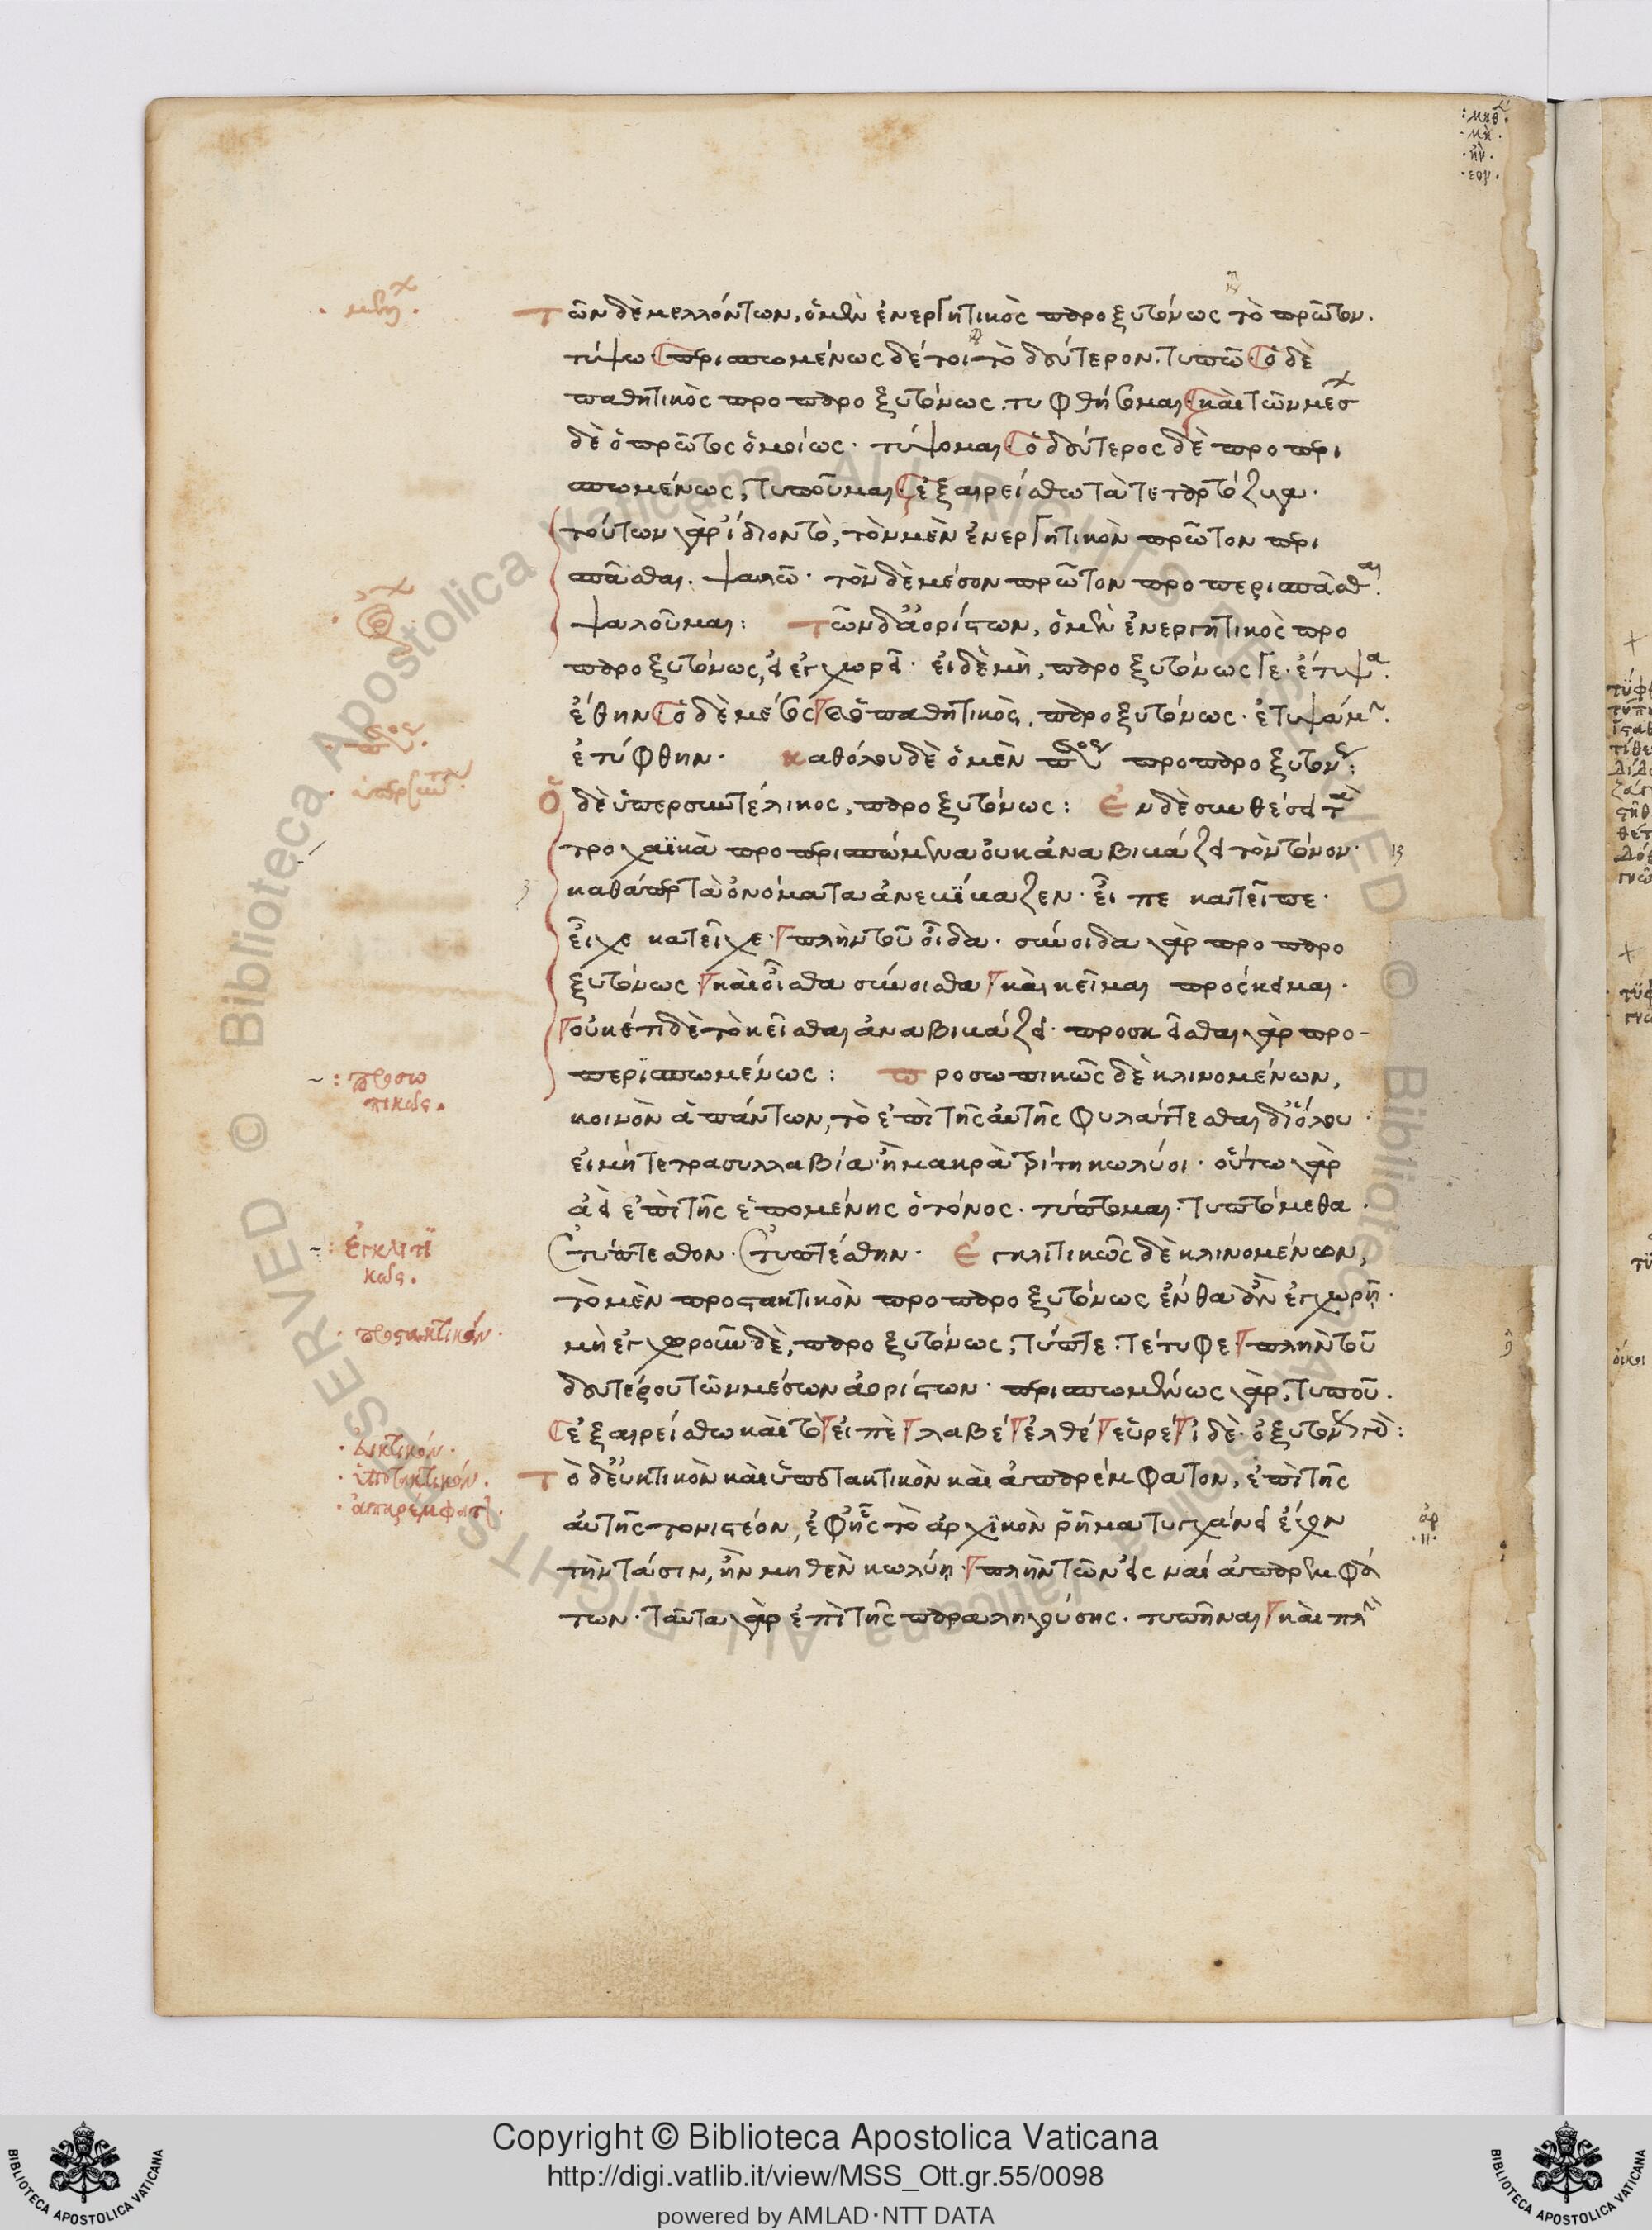 Τῶν δὲ μελλόντων, ὁ μὲν ἐνεργητικὸς παροξυτόνως τὸ πρῶτον.
τύψω περισπωμένως δέ τοι τὸ δεύτερον. τυπῶ ὁ δὲ
παθητικὸς προπαροξυτόνως. τυφθήσομαι καὶ τῶν μέσ
δὲ ὁ πρῶτος ὁμοίως · τύψομαι ὁ δεύτερος δὲ προπερι
σπωμένως, τυποῦμαι ἐξαιρείσθω τὰ τετάρτης
τούτων γὰρ ἴδιον τὸ, τὸν μὲν ἐνεργητικὸν πρῶτον περι
σπᾶσθαι. ψαλῶ · τὸν δὲ μέσον πρῶτον προπερισπᾶσθαι.
ψαλοῦμαι: τῶν δ' ἀορίστων, ὁ μὲν ἐνεργητικὸς προ
παροξυτόνως, εἰ ἐγχωρεῖ · εἰ δὲ μὴ, παροξυτόνως γε · ἔτυψα.
ἔθην ὁ δὲ μέσος καὶ ὁ παθητικὸς, παροξυτόνως · ἐτυψάμην.
ἐτύφθην · καθόλου δὲ ὁ μὲν προπαροξυτόνως:
Ὁ δὲ ὑπερσυντέλικος, παροξυτόνως: Ἐν δὲ συνθέσει τὰ
τροχαϊκὰ προπερισπώμενα οὐκ ἀναβιβάζει τὸν τόνον ·
καθάπερ τὰ ὀνόματα ἀνεβίβαζεν · εἶπε κατεῖπε ·
εἶχε κατεῖχε · πλὴν τοῦ οἶδα · σύνοιδα γὰρ προπαρο
ξυτόνως καὶ οἶσθα σύνοισθα καὶ κεῖμαι πρόσκειμαι ·
οὐκέτι δὲ τὸ κεῖσθαι ἀναβιβάζει · προσκεῖσθαι γὰρ προ-
περισπωμένως: Προσωπικῶς δὲ κλινομένων,
κοινὸν ἁπάντων, τὸ ἐπὶ τῆς αὐτῆς φυλάττεσθαι διόλου
εἰ μὴ τετρασυλλαβία ἢ μακρὰ τρίτη κωλύοι · οὕτω γὰρ
ἀεὶ ἐπὶ τῆς ἑπομένης ὁ τόνος · τύπτομαι · τυπτόμεθα ·
τύπτεσθον · τυπτέσθην · Ἐγκλιτικῶς δὲ κλινομένων,
τὸ μὲν προστακτικὸν προπαροξυτόνως ἔνθα δὴ ἐγχωρῇ ·
μὴ ἐγχωροῦν δὲ, παροξυτόνως, τύπτε · τέτυφε · πλὴν τοῦ
δευτέρου τῶν μέσων ἀορίστων · περισπωμένως γὰρ, τυποῦ.
ἐξαιρείσθω καὶ τὸ εἰπὲ λαβέ ἐλθέ εὑρέ ἰδὲ · ὀξυτόνως γὰρ:
Τὸ δ' εὐκτικὸν καὶ ὑποτακτικὸν καὶ ἀπαρέμφατον, ἐπὶ τῆς
αὐτῆς τονιστέον, ἐφ' ἧς τὸ ἀρχικὸν ῥῆμα τυγχάνει ἔχον
τὴν τάσιν, ἢν μηθὲν κωλύῃ · πλὴν τῶν εἰς ναί ἀπαρεμφά
των · ταῦτα γὰρ ἐπὶ τῆς παραληγούσης · τυπῆναι καὶ πλὴν
~: προσω
πικῶς.
~: Ἐγκλιτι
κῶς.
· προστακτικόν ·
· εὐκτικόν ·
· ὑποτακτικόν.
· ἀπαρέμφατ.
Copyright © Biblioteca Apostolica Vaticana
http://digi.vatlib.it/view/MSS_Ott.gr.55/0098
powered by AMLAD·NTT DATA